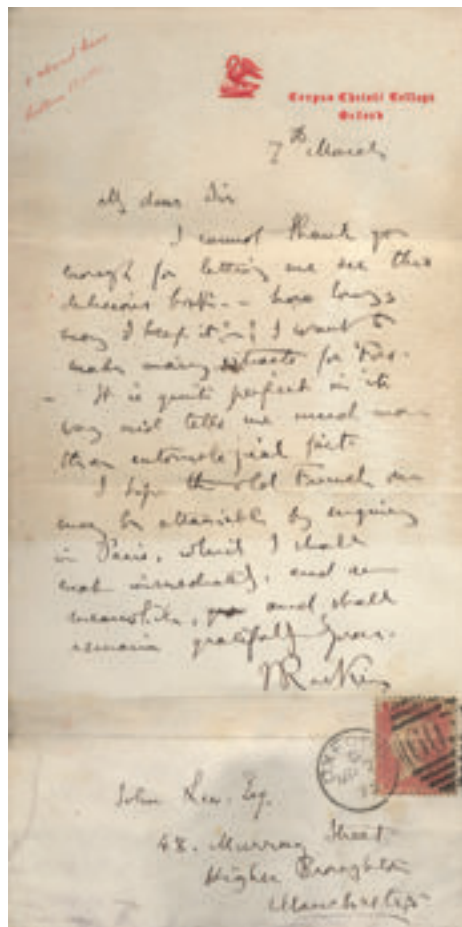 Corpus Christi College
Oxford
7th March
My dear Sir
I cannot thank you
enough for letting me see this
delicious book -- how long
may I keep it - ; I want to
make many extracts for Fors.
It is quite perfect in its
way and tells me much more
than entomological fact.
I hope the old French one
may be attainable by enquiry
in Paris, which I shall
make immediately, and
meanwhile, and shall
remain gratefully yours.
JRuskin
OXFORD
John Esq.
48. Murray Street
Higher Broughton
Manchester